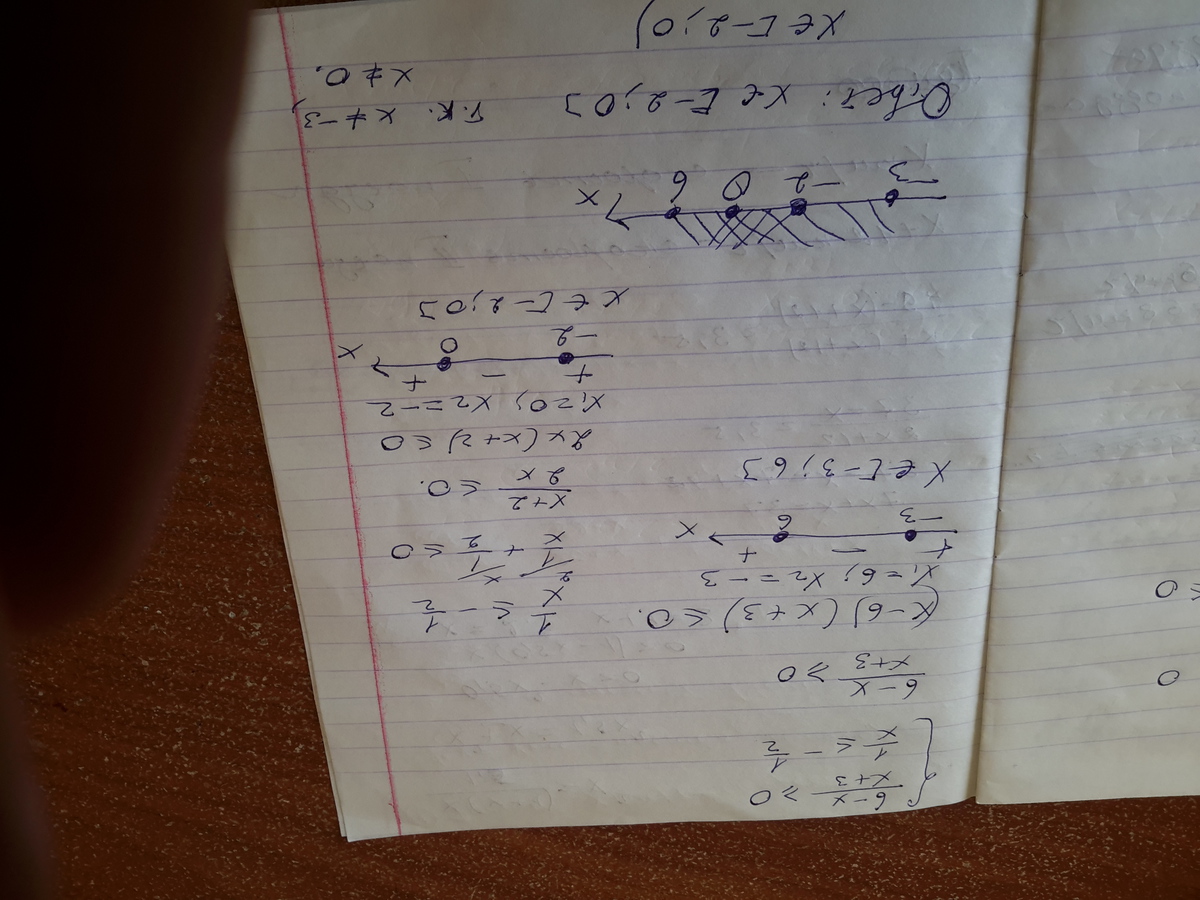 { 6-x/x+3 ≥ 0
1/x ≤ -1/2
6-x/x+3 ≥ 0
(x-6)(x+3) ≤ 0.
x₁=6; x₂=-3
+ - +
-3 6 x
x ∈ [-3; 6]
1/x ≤ -1/2
2/ 1/x + x/ 1/2 ≤ 0
x+2/2x ≤ 0.
2x(x+2) ≤ 0
x₁=0; x₂=-2
+ - +
-2 0 x
x ∈ [-2; 0]
-3 -2 0 6 x
Ответ: x ∈ [-2; 0] т.к. x ≠ -3,
x ≠ 0.
x ∈ [-2; 0)
≤ 0
0